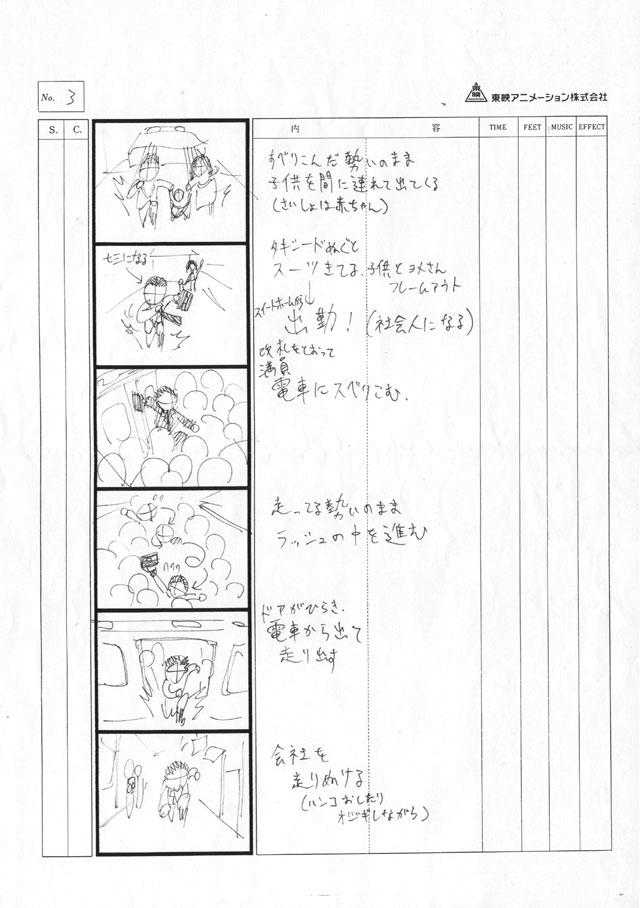 No. 3
東映
東映アニメーション株式会社
S. C. 内 容 TIME FEET MUSIC EFFECT
すべりこんだ勢いのまま
子供を間に連れて出てくる
(さいしょは赤ちゃん)
七三になる
タキシードぬぐと
スーツきてる、子供とヨメさん
フレームアウト
スイートホームから
出勤! (社会人になる)
改札をとおって
満員
電車にスベりこむ、
走ってる勢いのまま
ラッシュの中を進む
ドアがひらき、
電車から出て
走り出す
会社を
走りぬける
(ハンコおしたり
オジギしながら)